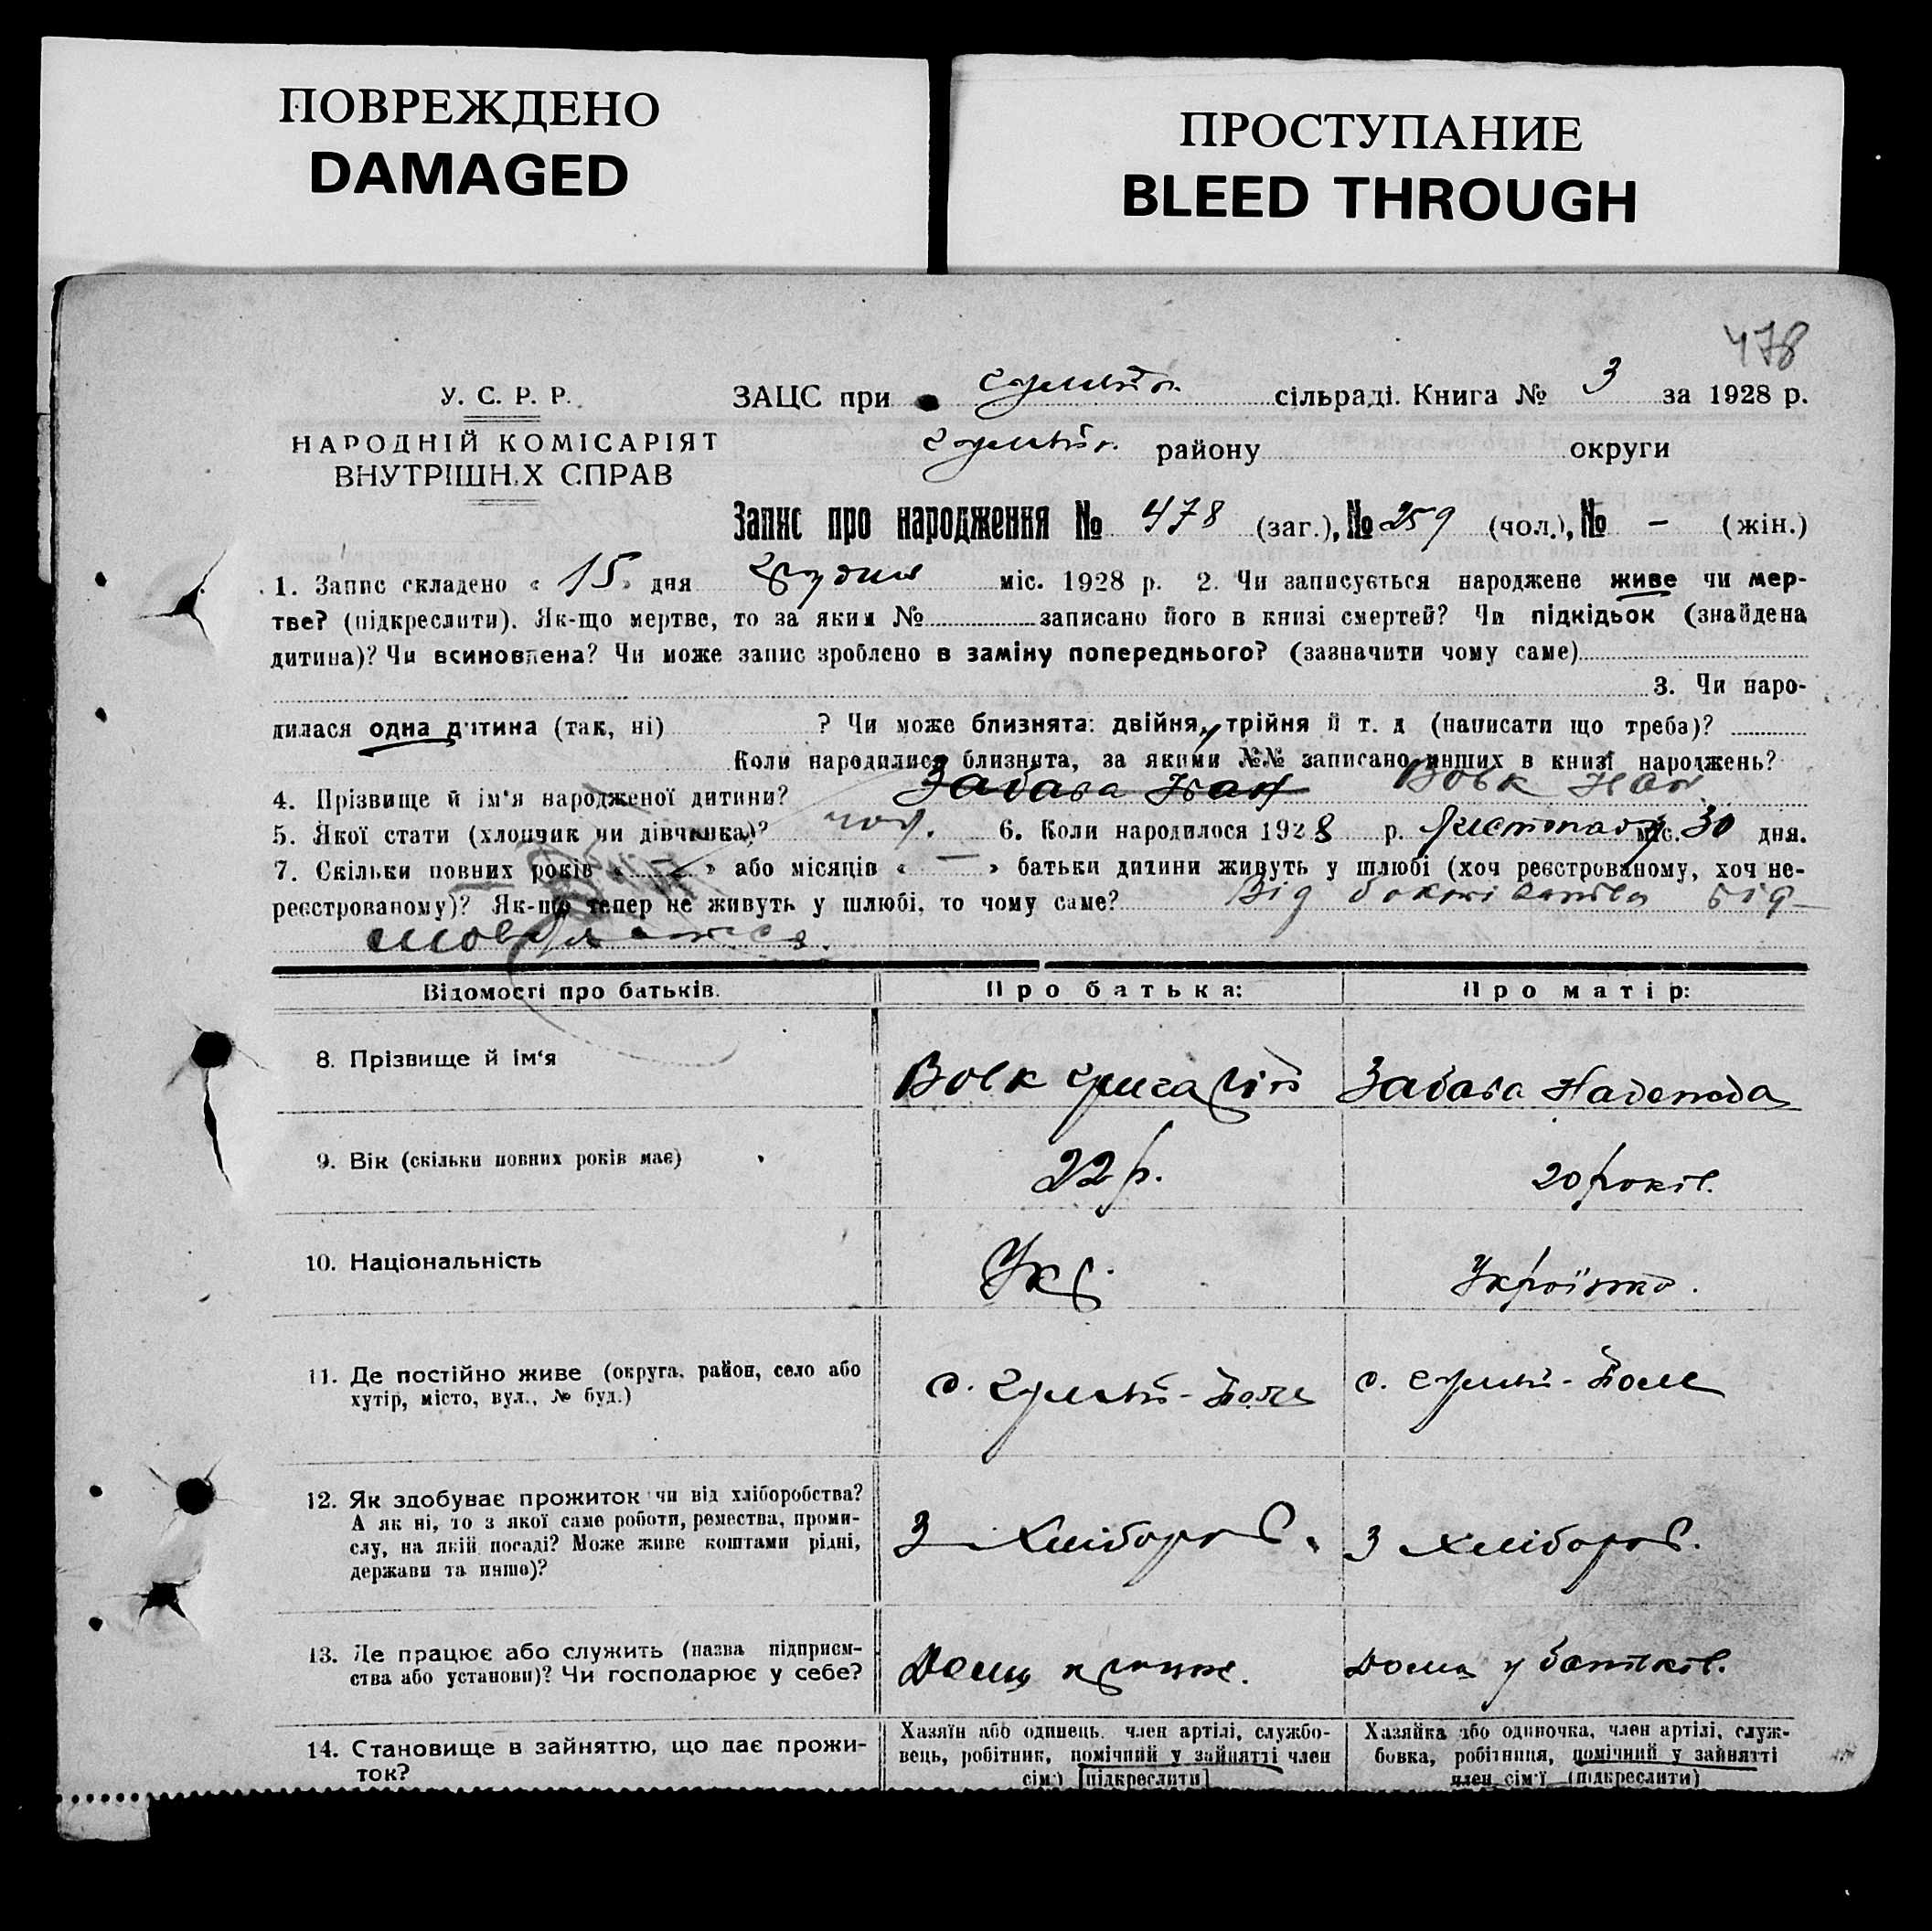 ПОВРЕЖДЕНО
DAMAGED
ПРОСТУПАНИЕ
BLEED THROUGH
478
У. С. Р. Р.
НАРОДНІЙ КОМІСАРІЯТ
ВНУТРІШН.Х СПРАВ
ЗАЦС при сільраді. Книга № 3 за 1928 р.
району округи
Запис про народження № 478 (заг.), № 259 (чол.), № - (жін.)
1. Запис складено « 15 » дня Грудня міс. 1928 р. 2. Чи записується народжене живе чи мер-
тве? (підкреслити). Як-що мертве, то за яким № записано його в книзі смертей? Чи підкідьок (знайдена
дитина)? Чи всиновлена? Чи може запис зроблено в заміну попереднього? (зазначити чому саме)
3. Чи наро-
дилася одна дитина (так, ні) ? Чи може близнята: двійня, трійня й т. д (написати що треба)?
Коли народилися близнята, за якими №№ записано инших в книзі народжень?
4. Прізвище й ім'я народженої дитини? Забава Іван Вовк Іван
5. Якої стати (хлопчик чи дівчинка)? чол. 6. Коли народилося 1928 р. Листопаду міс. 30 дня.
7. Скільки повних років « — » або місяців « — » батьки дитини живуть у шлюбі (хоч реєстрованому, хоч не-
реєстрованому)? Як-що тепер не живуть у шлюбі, то чому саме? Від від-
Відомості про батьків. Про батька: Про матір:
8. Прізвище й ім'я Вовк Григорій Забава Надежда
9. Вік (скільки повних років має) 22 р. 20 років.
10. Національність Укр. Українка.
11. Де постійно живе (округа, район, село або
хутір, місто, вул., № буд.)
с. Гуляй-Поле с. Гуляй-Поле
12. Як здобуває прожиток чи від хліборобства?
А як ні, то з якої саме роботи, ремества, проми-
слу, на якій посаді? Може живе коштами рідні,
держави та инше)?
З Хлібороб. З Хлібороб.
13. Де працює або служить (назва підприєм-
ства або установи)? Чи господарює у себе?
Дома Дома у батьків.
14. Становище в зайняттю, що дає прожи-
ток?
Хазяїн або одинець, член артілі, службо-
вець, робітник, помічний у зайнятті член
сім'ї [підкреслити]
Хазяйка або одиночка, член артілі, служ-
бовка, робітниця, помічний у зайнятті
член сім'ї (підкреслити)